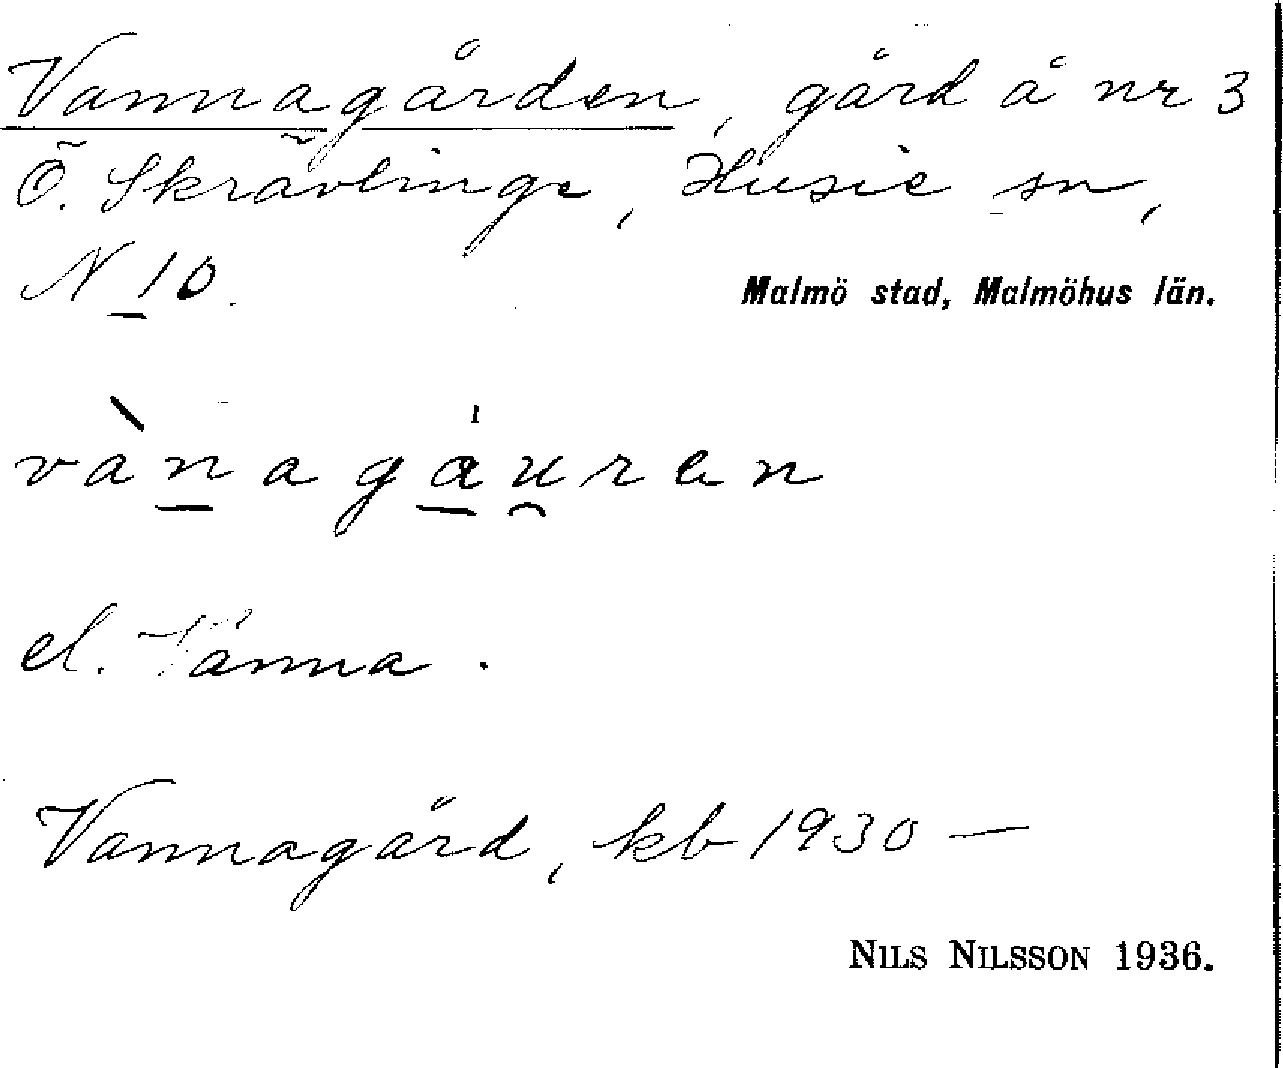 Vannagården, gård å nr 3
Ö. Skrävlinge, Husie sn,
N 10.
Malmö stad, Malmöhus län.
vànagáu̯ren
el. Vanna.
Vannagård, kb 1930 —
NILS NILSSON 1936.